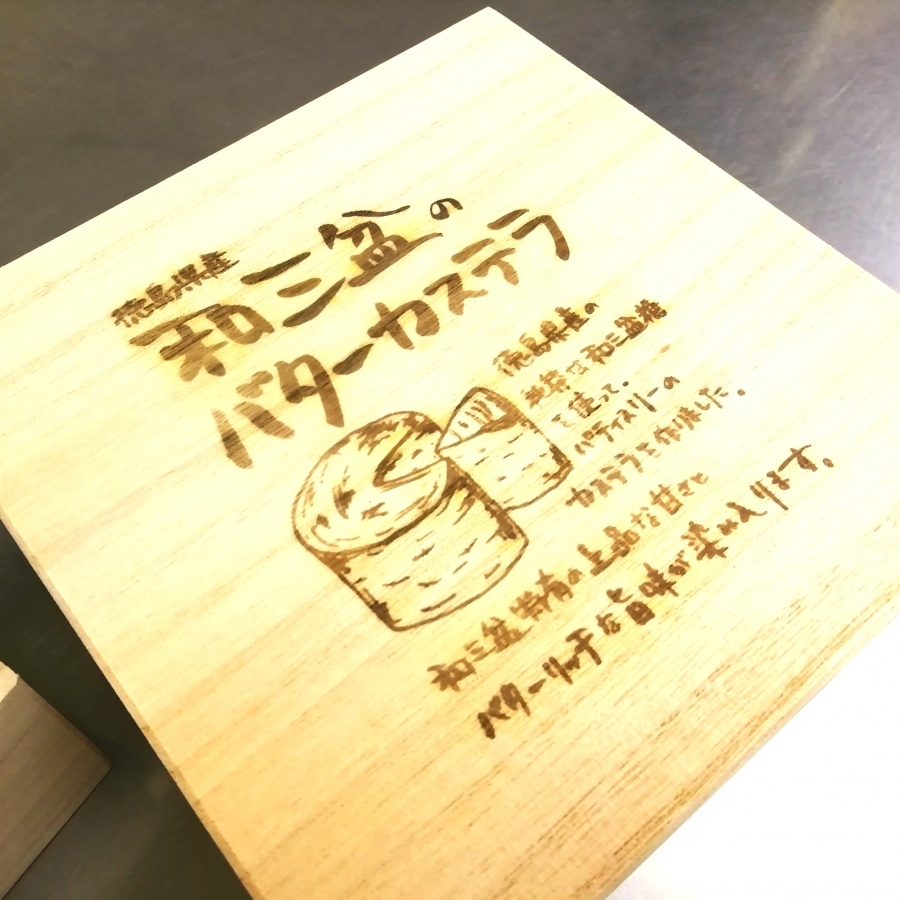 徳島県産
和三盆の
バターカステラ
徳島県産の
和三盆糖
を使って、
パティスリーの
カステラを作りました。
和三盆特有の上品な甘さと
バターリッチな旨味が染み入ります。